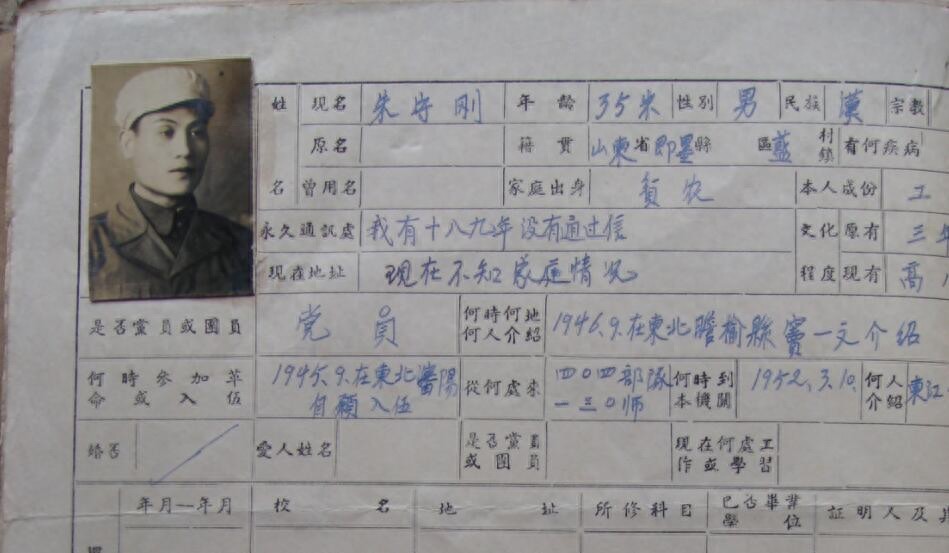 姓 現名 朱守刚 年齡 35岁 性別 男 民族 漢 宗教
原名 籍貫 山東省即墨縣 區藍 村鎮 有何疾病
名 曾用名 家庭出身 貧农 本人成份 工
永久通訊處 我有十八九年没有通过信 文化 原有 三
現在地址 現在不知家庭情况 程度 現有 高
是否黨員或團員 党員 何時何地何人介紹 1946.9.在東北瞻榆縣竇一文介紹
何時參加革命或入伍 1945.9.在東北瀋陽自願入伍 從何處來 四〇四部隊一三〇师 何時到本機關 1952.3.10. 何人介紹 東江
婚否 愛人姓名 是否黨員或團員 現在何處工作或學習
年月—年月 校名 地址 所修科目 已否畢業學位 証明人及